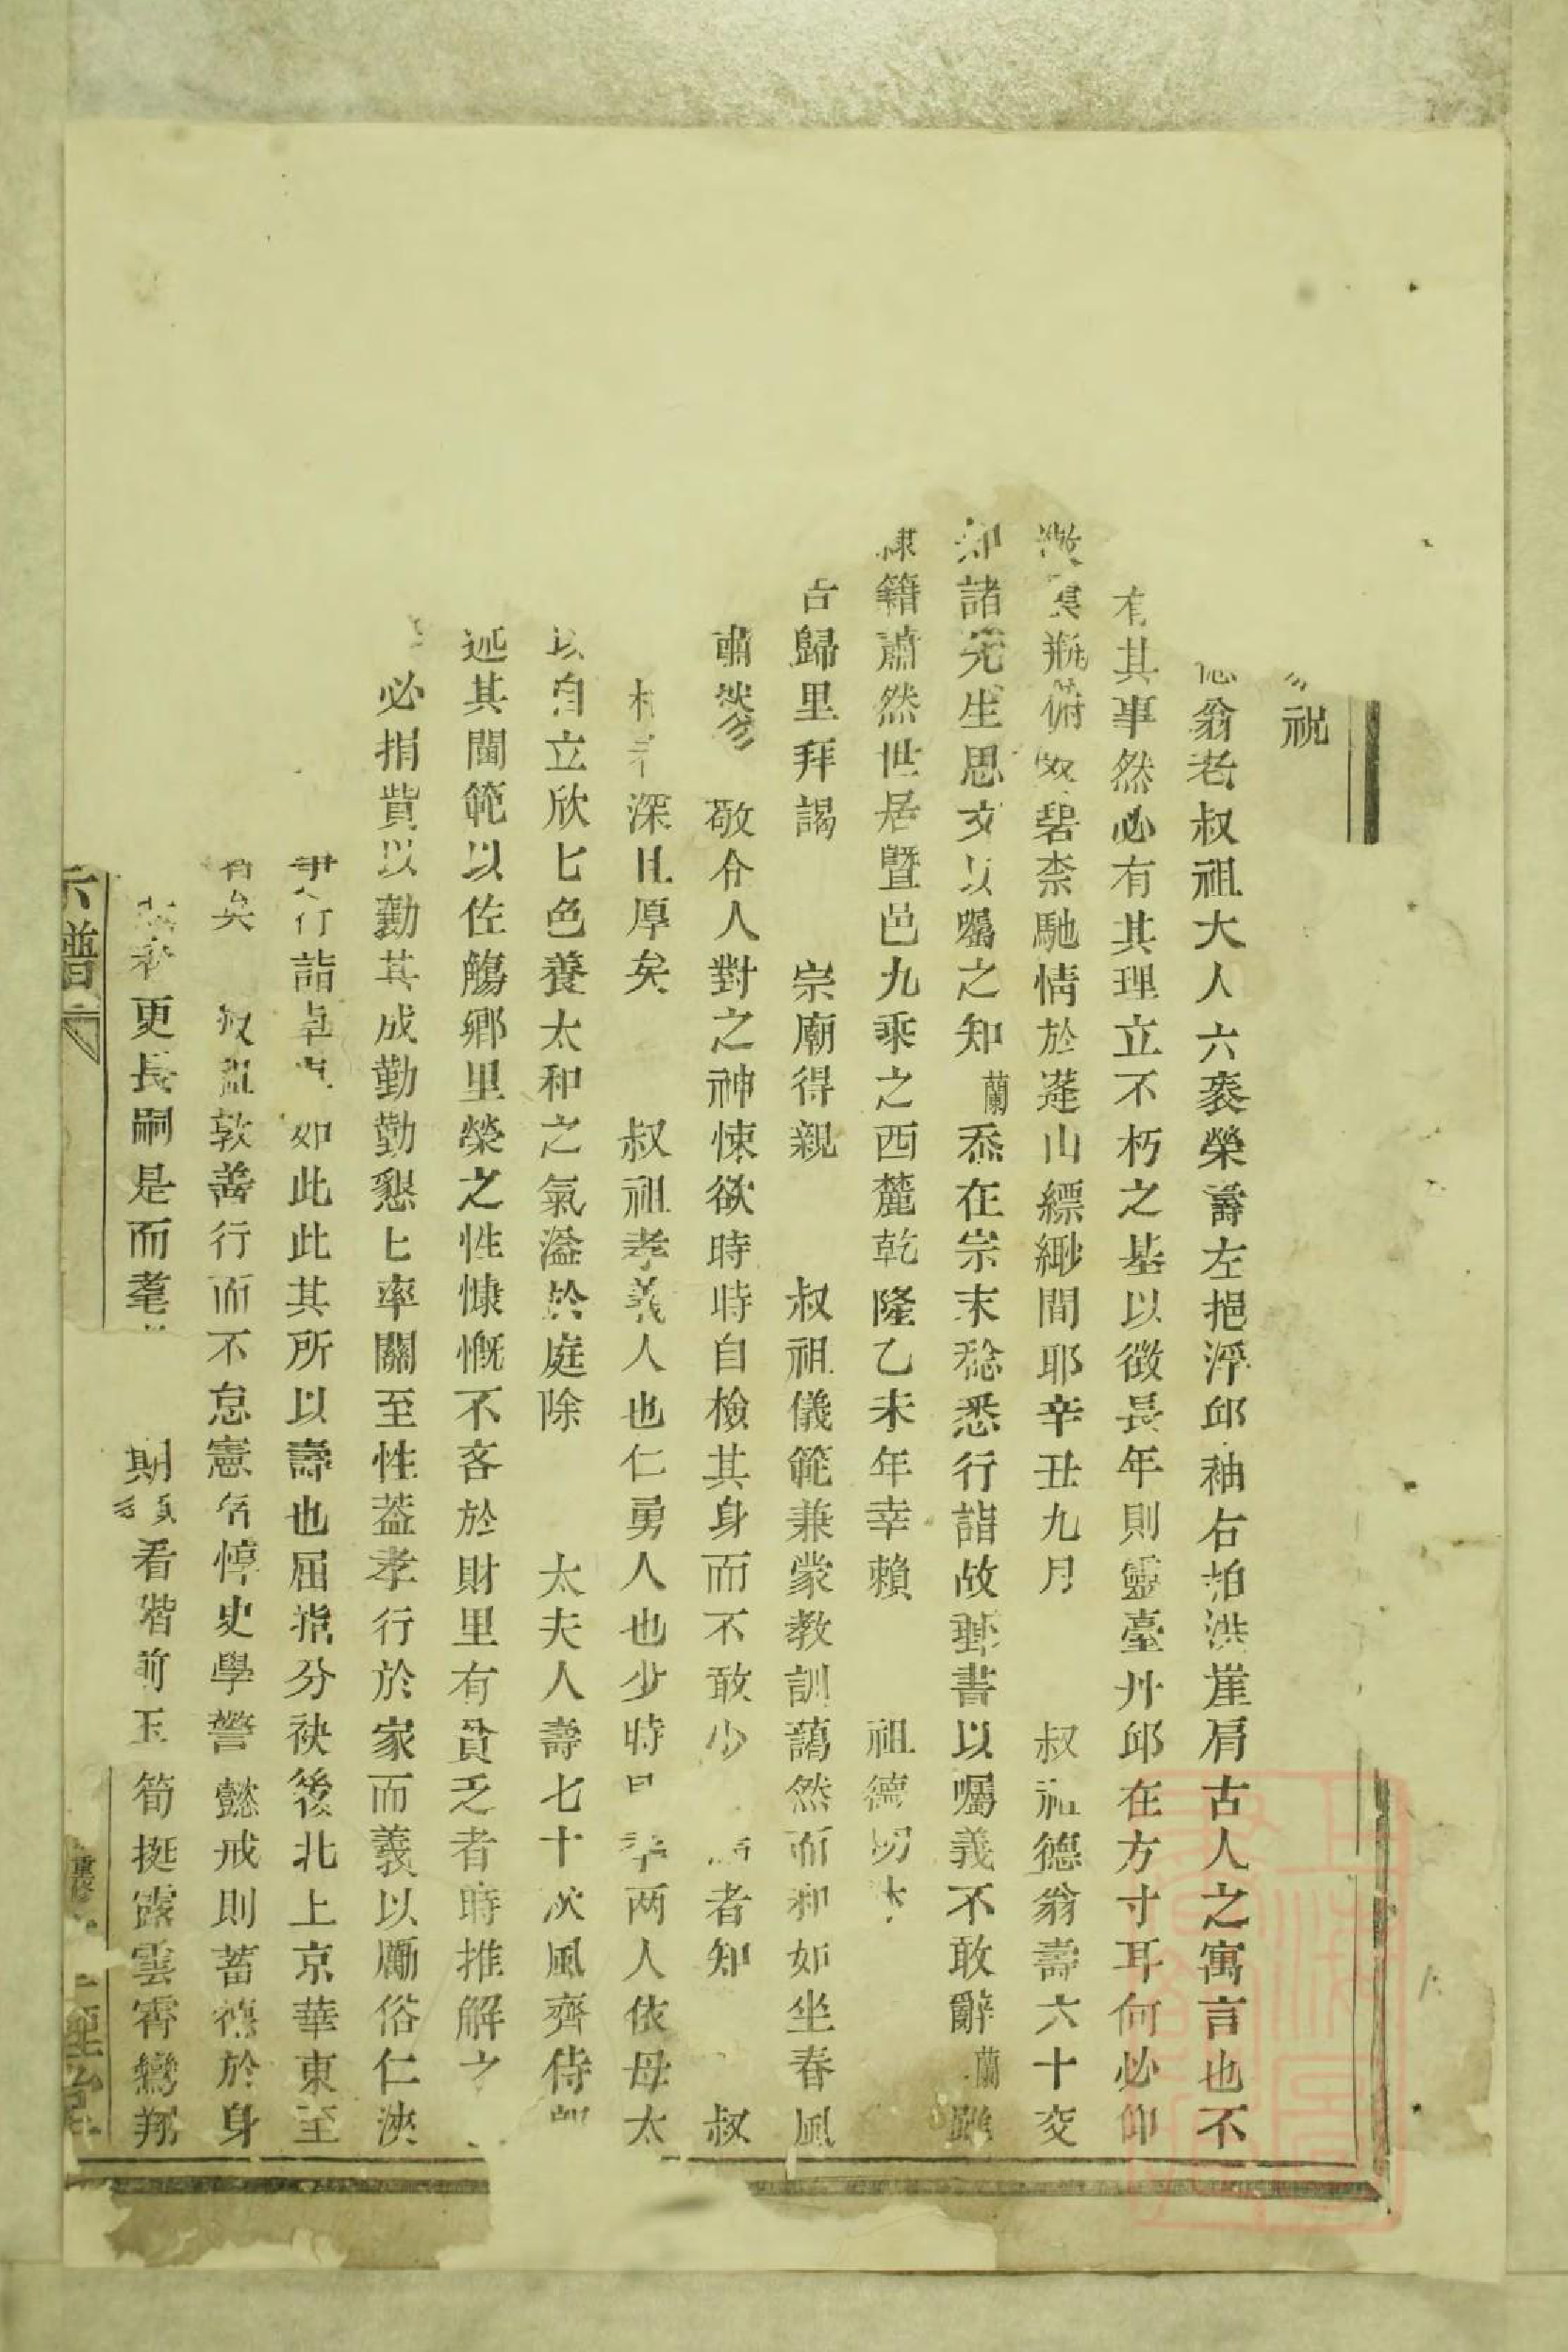 祝
翁老叔祖大人六袠榮壽左挹浮邱袖右拍洪崖肩古人之寓言也不
有其事然必有其理立不朽之基以徵長年則靈臺丹邱在方寸耳何必仰
瓶俯 碧柰馳情於蓬山縹緲間耶辛丑九月 叔祖德翁壽六十交
知諸先生思文以囑之知蘭忝在宗末稔悉行誼故郵書以囑義不敢辭蘭雖
隸籍蕭然世居暨邑九乘之西麓乾隆乙未年幸賴 祖德切
古歸里拜謁 宗廟得親 叔祖儀範兼蒙教訓藹然而和如坐春風
肅 敬令人對之神悚欲時時自檢其身而不敢少 者知 叔
深且厚矣 叔祖孝義人也仁勇人也少時 兩人依母太
以自立欣七色養太和之氣溢於庭除 太夫人壽七十次風齊侍郎
述其閫範以佐觴鄉里榮之性慷慨不吝於財里有貧乏者時推解之
必捐貲以勷其成勤勤懇七率關至性葢孝行於家而義以勵俗仁浹
行誼卓卓如此此其所以壽也屈指分袂後北上京華東至
矣 叔祖敦善行而不怠憲名惇史學警懿戒則蓄德於身
更長嗣是而耄 期頤看堦前玉筍挺露雲霄鸞翔
宗譜
重修